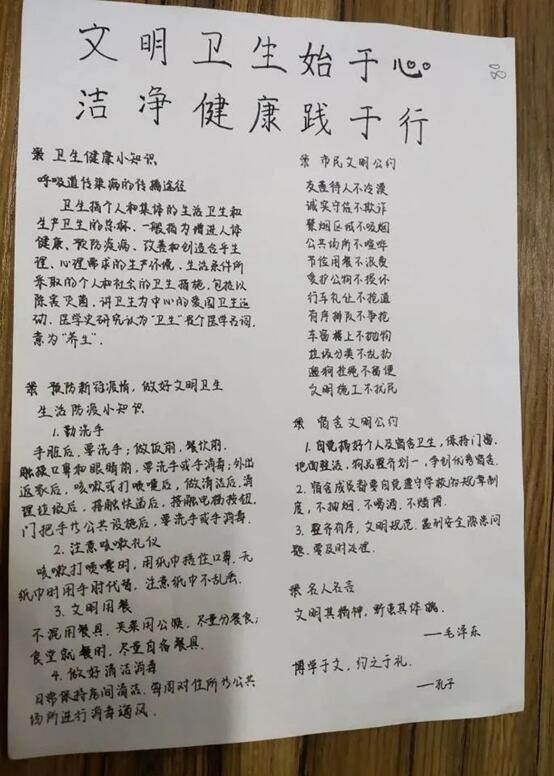 文明卫生始于心
洁净健康践于行
80
※ 卫生健康小知识
呼吸道传染病的传播途径
卫生指个人和集体的生活卫生和
生产卫生的总称．一般指为增进人体
健康、预防疾病、改善和创造合乎生
理、心理需求的生产环境、生活条件所
采取的个人和社会的卫生措施，包括以
除害灭菌、讲卫生为中心的爱国卫生运
动．医学史研究认为“卫生”是个医学名词，
意为“养生”．
※ 预防新冠疫情，做好文明卫生
生活防疫小知识
1. 勤洗手
手脏后，要洗手；做饭前，餐饮前，
触摸口鼻和眼睛前，要洗手或手消毒；外出
返家后，咳嗽或打喷嚏后，做清洁后，清
理垃圾后，接触快递后，接触电梯按钮，
门把手等公共设施后，要洗手或手消毒．
2. 注意咳嗽礼仪
咳嗽打喷嚏时，用纸巾捂住口鼻，无
纸巾时用手肘代替，注意纸巾不乱丢．
3. 文明用餐
不混用餐具，夹菜用公筷，尽量分餐食；
食堂就餐时，尽量自备餐具．
4. 做好清洁消毒
日常保持房间清洁，每周对住所等公共
场所进行消毒通风．
※ 市民文明公约
友善待人不冷漠
诚实守信不欺诈
禁烟区域不吸烟
公共场所不喧哗
节俭用餐不浪费
爱护公物不损坏
行车礼让不抢道
有序排队不争抢
车窗楼上不抛物
垃圾分类不乱扔
遛狗拴绳不留便
文明施工不扰民
※ 宿舍文明公约
1. 自觉搞好个人及宿舍卫生，保持门窗、
地面整洁，物品整齐划一，争创优秀宿舍．
2. 宿舍成员都要自觉遵守学校的规章制
度，不抽烟，不喝酒，不赌博．
3. 整齐有序，文明规范．遇到安全隐患问
题．要及时处理．
※ 名人名言
文明其精神，野蛮其体魄．
——毛泽东
博学于文，约之于礼．
——孔子